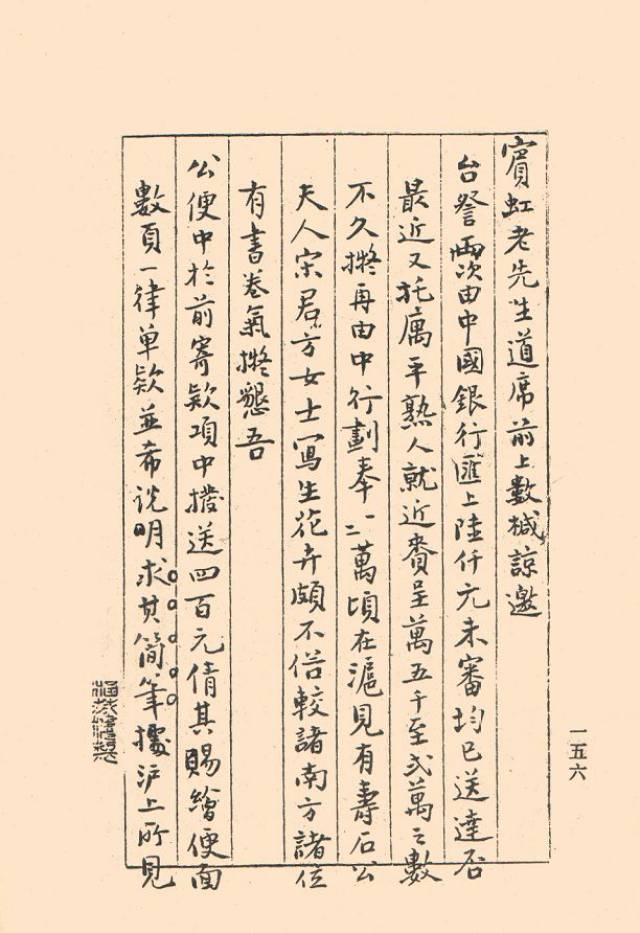 賓虹老先生道席前上數椷諒邀
台詧兩次由中國銀行匯上陸仟元未審均已送達否
最近又托厲平熟人就近賫呈萬五千至弍萬之數
不久擬再由中行劃奉一二萬頃在滬見有壽石公
夫人宋君方女士寫生花卉頗不俗較諸南方諸位
有書卷氣擬懇吾
公便中於前寄款項中撥送四百元倩其賜繪便面
數頁一律单款並希说明求其简筆據沪上所見
一五六